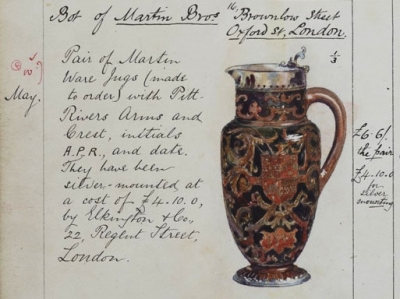 Bot of Martin Bros 16 Brownlow Street
Oxford St, London.
May.
Pair of Martin
Ware Jugs (made
to order) with Pitt-
Rivers Arms and
Crest, initials
A.P.R., and date.
They have been
silver-mounted at
a cost of £4.10.0,
by Elkington & Co,
22, Regent Street,
London.
1/3
£6.6/.
the pair
£4.10.0
for
silver
mounting